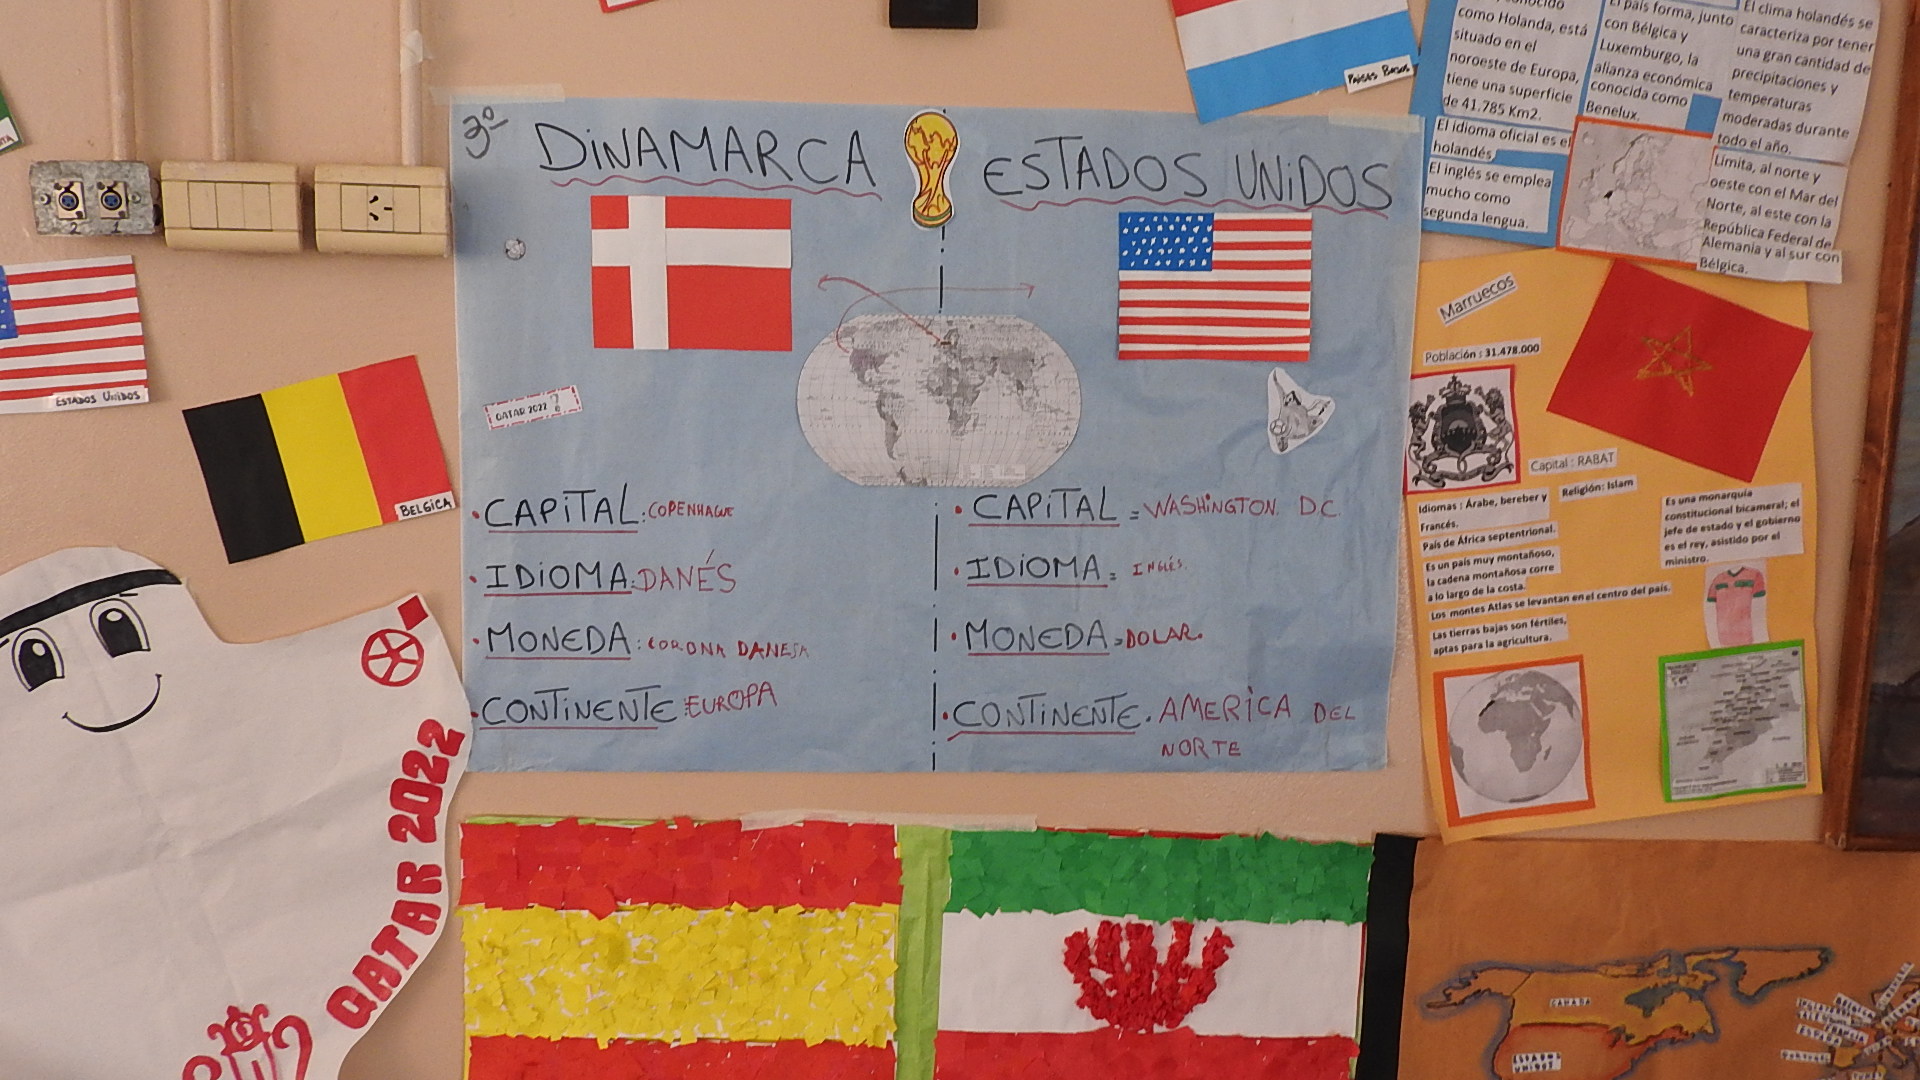 3º
DINAMARCA
ESTADOS UNIDOS
QATAR 2022
CAPITAL: COPENHAGUE
IDIOMA: DANÉS
MONEDA: CORONA DANESA
CONTINENTE: EUROPA
CAPITAL = WASHINGTON DC
IDIOMA = INGLÉS.
MONEDA = DOLAR.
CONTINENTE. AMERICA DEL
NORTE
ESTADOS UNIDOS
BELGICA
QATAR 2022
Países Bajos
como Holanda, está
situado en el
noroeste de Europa,
tiene una superficie
de 41.785 Km2.
El idioma oficial es el
holandés.
El inglés se emplea
mucho como
segunda lengua.
El país forma, junto
con Bélgica y
Luxemburgo, la
alianza económica
conocida como
Benelux.
El clima holandés se
caracteriza por tener
una gran cantidad de
precipitaciones y
temperaturas
moderadas durante
todo el año.
Limita, al norte y
oeste con el Mar del
Norte, al este con la
República Federal de
Alemania y al sur con
Bélgica.
Marruecos
Población : 31.478.000
Capital : RABAT
Religión: Islam
Idiomas : Árabe, bereber y
Francés.
País de África septentrional.
Es un país muy montañoso,
la cadena montañosa corre
a lo largo de la costa.
Los montes Atlas se levantan en el centro del país.
Las tierras bajas son fértiles,
aptas para la agricultura.
Es una monarquía
constitucional bicameral; el
jefe de estado y el gobierno
es el rey, asistido por el
ministro.
CANADA
ESTADOS
UNIDOS